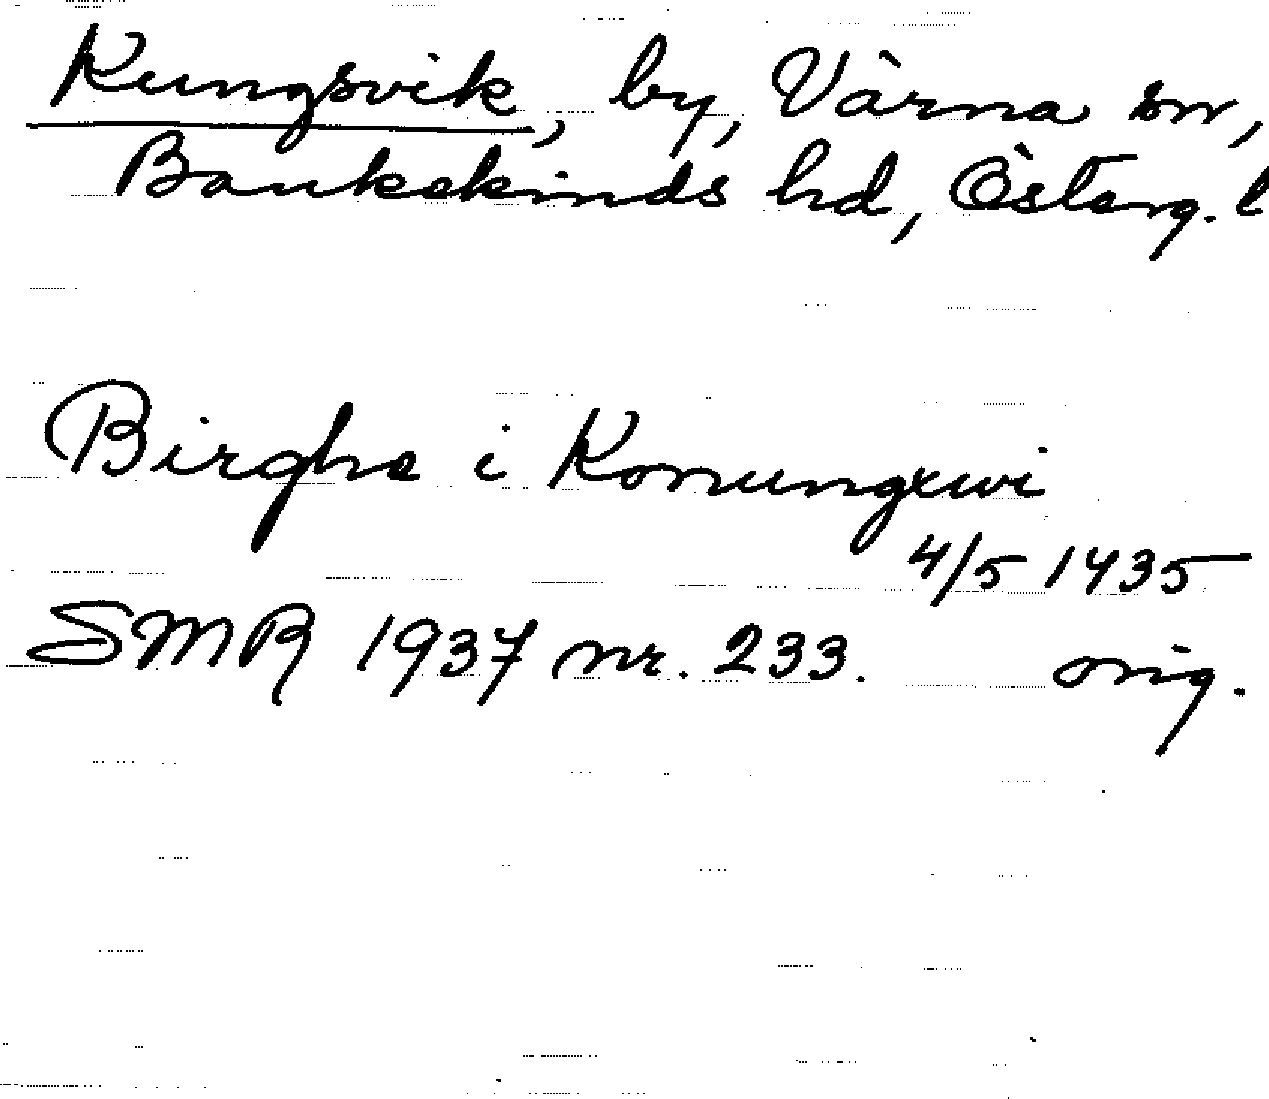 Kungsvik, by, Värna sn,
Bankekinds hd, Österg. l
Birghe i Konungxwi
4/5 1435
SMR 1937 nr. 233. orig.